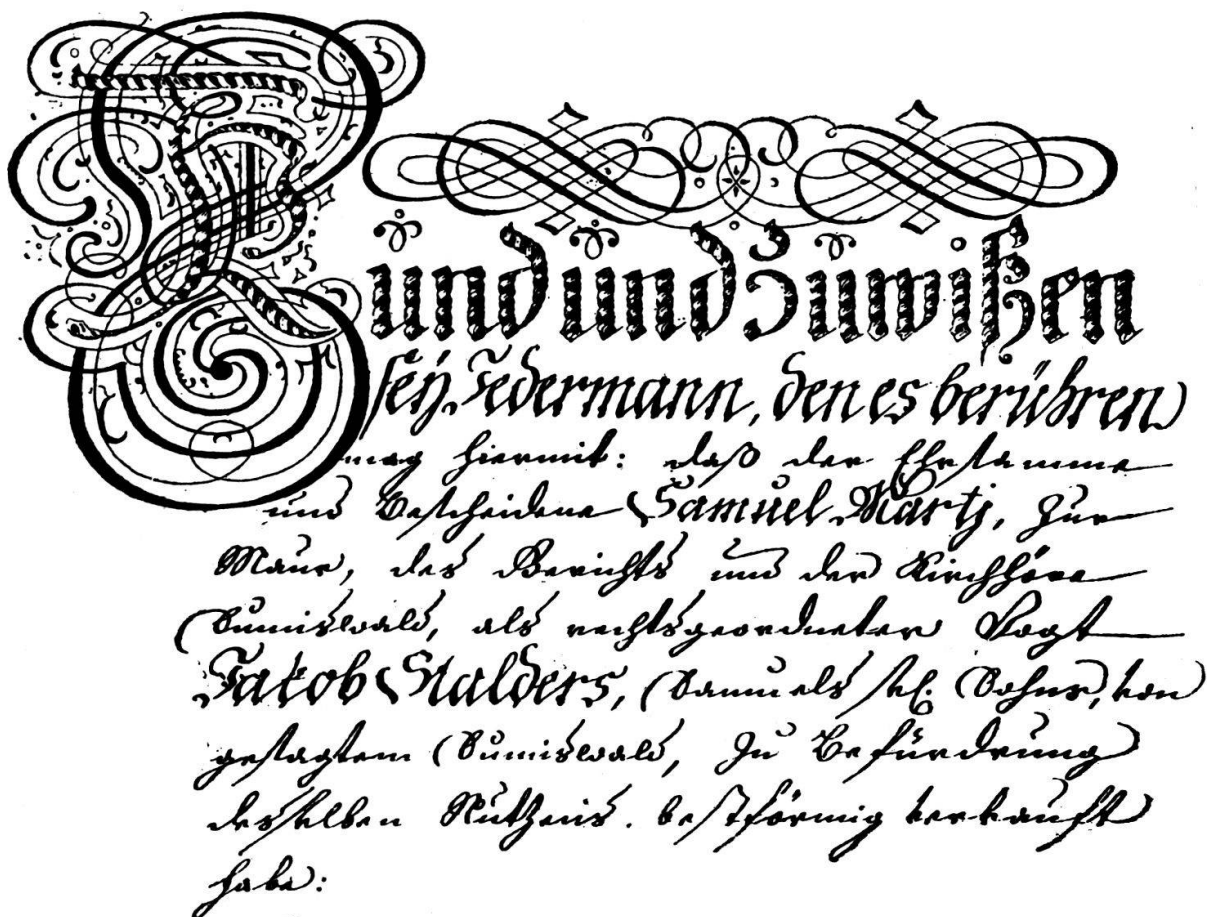 Kund und Zu wißen
sey Jedermann, den es berühren
mag hiermit: daß der Ehrsamme
und Bescheidene Samuel Martj, Zur
Maur, des Gerichts und der Kirchhöre
Sumiswald, als rechtsgeordneter Vogt
Jakob Stalders, Samuels sel. Sohns, von
gesagtem Sumiswald, zu Befürdrung
desselben Nutzens. bestförmig verkauft
habe: